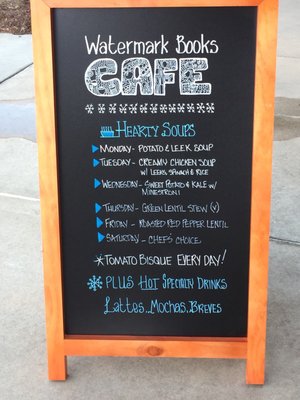 Watermark Books
CAFE
Hearty Soups
Monday - Potato & Leek Soup
Tuesday - Creamy Chicken Soup
w/ Leeks, Spinach & Rice
Wednesday - Sweet Potato & Kale w/
Minestroni
Thursday - Green Lentil Stew (V)
Friday - Roasted Red Pepper Lentil
Saturday - Chefs' Choice
Tomato Bisque Every Day!
Plus Hot Specialty Drinks
Lattes..Mochas..Breves